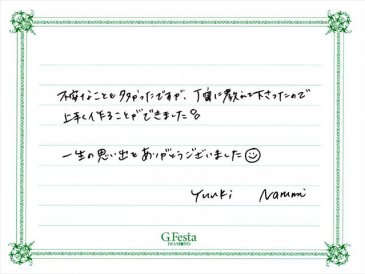 不安なことも多かったですが、丁寧に教えて下さったので
上手く作ることができました。
一生の思い出をありがとうございました
Yuuki Narumi
G.Festa
DIAMONDS